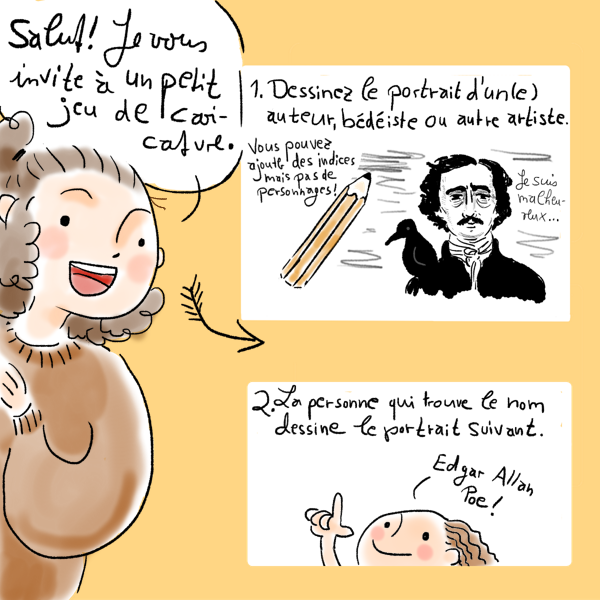 Salut! Je vous
invite à un petit
jeu de cari-
cature.
1. Dessinez le portrait d'un(e)
auteur, bédéiste ou autre artiste.
Vous pouvez
ajouter des indices
mais pas de
personnages!
Je suis
malheu-
reux...
2. La personne qui trouve le nom
dessine le portrait suivant.
Edgar Allan
Poe!